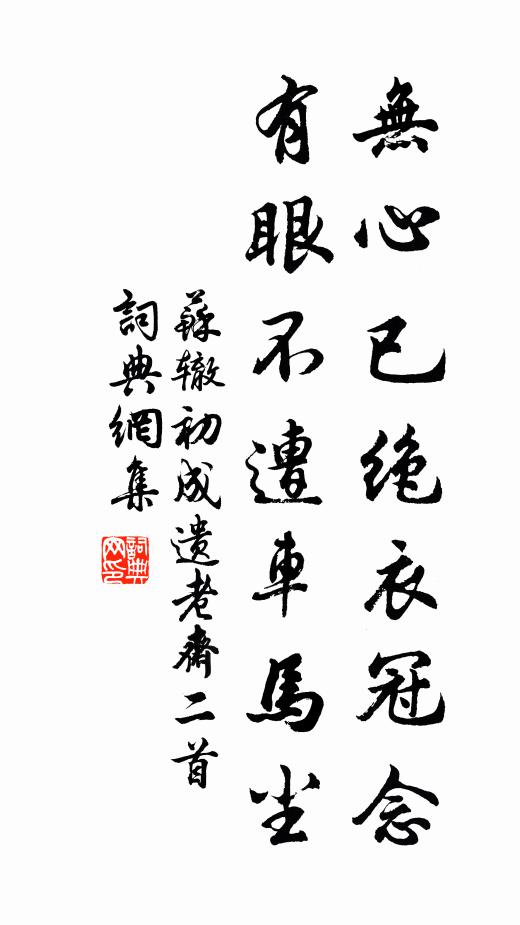 無心已絶衣冠念
有眼不遭車馬尘
蘇辙初成遗老齋二首
詞典網集
詞典网印